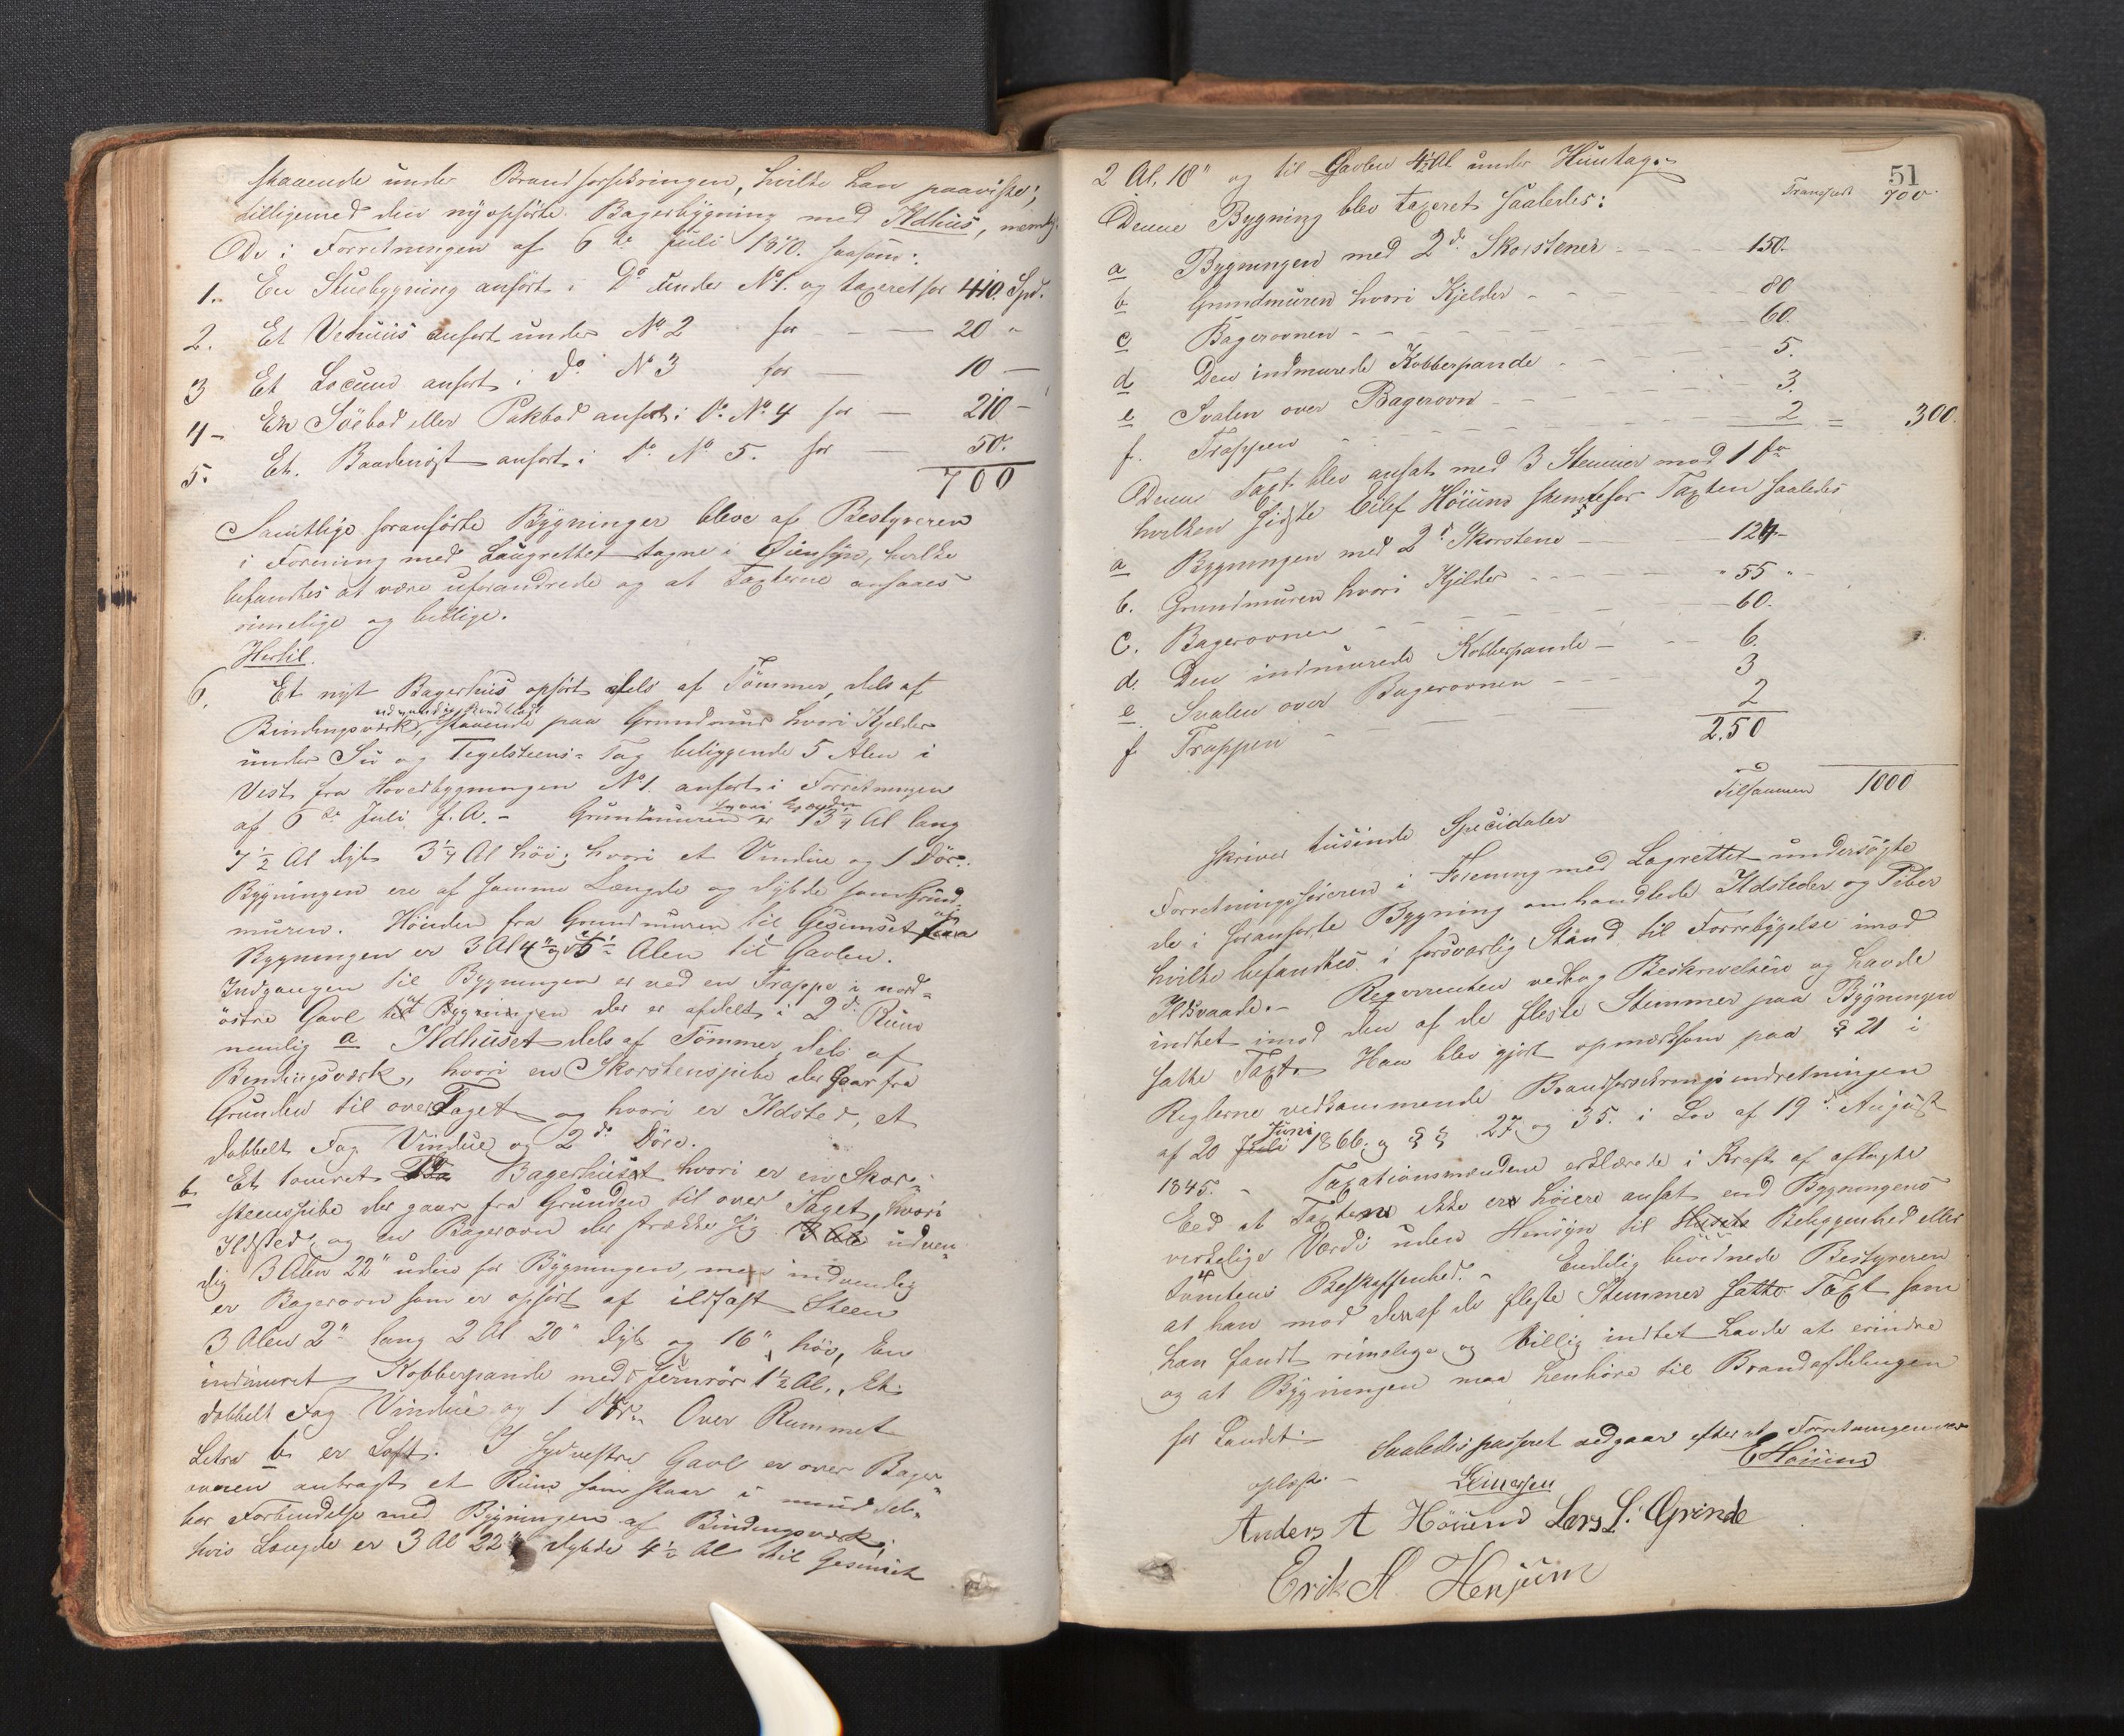 staaende under Brandforsikringen, hvilke han paaviste;
tilligemed den nyopførte Bagerbygning med Ildhus, nemlig
De i Forretningen af 6te Juli 1870. saasom:
1. En Stuebygning anført i Do under No 1. og taxeret for 410 Spd.
2. Et Vedhuus anført under No 2 for — — 20 "
3 Et Locum anført i do No 3 for — 10 —
4 - En Søebod eller Pakbod anført i Do No 4 for — 210 -
5. Et Baadenøst anført i Do No 5. for — 50.
700
Samtlige foranførte Bygninger bleve af Bestyreren
i Forening med Laugrettet tagne i Øiensyn, hvilke
befandtes at være uforandrede og at Taxterne ansaaes
rimelige og billige.
Hertil.
6. Et nyt Bagerhus opført dels af Tømmer, dels af
udvendig bordklædt
Bindingsværk, staaende paa Grundmur hvori Kjelder
under Su og Tegelsteens-Tag beliggende 5 Alen i
Vest fra Hovedbygningen No 1. anført i Forretningen
af 6te Juli f. A. - Grundmuren er 13 1/4 Al lang
7 1/2 Al dyb 3 1/4 Al høi; hvori et Vindue og 1 Dør.
Bygningen er af samme Længde og dybde som Grund-
muren. Høiden fra Grundmuren til Gesimset paa
Bygningen er 3 Al 4" og 5 1/2 Alen til Gavlen.
Indgangen til Bygningen er ved en Trappe i nord-
østre Gavl til Bygningen der er afdelt i 2de Rum
nemlig a Ildhuset dels af Tømmer, dels af
Bindingsværk, hvori en Skorstenspibe der gaar fra
Grunden til over Taget og hvori er Ildsted, et
dobbelt Fag Vindue og 2de Døre.
b Et tømret Bagerhuset hvori er en Skor-
steenspibe der gaar fra Grunden til over Taget, hvori
Ildsted og en Bagerovn der strækker sig 3 Ale udven-
dig 3 Alen 22" uden for Bygningen, men indvendig
er Bagerovn som er opført af ildfast Steen
3 Alen 2" lang 2 Al 20" dyb og 16" høi, En
indmuret Kobberpande med Jernrør 1 1/2 Al. Et
dobbelt Fag Vindue og 1 Dør. Over Rummet
Litra b er Loft. I sydvestre Gavl er over Bager-
ovnen anbragt et Rum som staar i umiddel-
bar Forbindelse med Bygningen af Bindingsværk,
hvis Længde er 3 Al 22" dybde 4 1/2 Al til Gesimset
51
2 Al. 18" og til Gavlen 4 1/2 Al under Huntag.
Transport 700.
Denne Bygning blev taxeret saaledes:
a Bygningen med 2de Skorstener - - - 150.
b Grundmuren hvori Kjelder - - - 80
c Bagerovnen - - - 60.
d Den indmurede Kobberpande - - - 5.
e Svalen over Bagerovn - - - 3.
f. Trappen - - - 2 = 300.
Denne Taxt blev ansat med 3 Stemmer mod 1 fra
hvilken sidste Eilef Høium stemte for Taxten saaledes
a Bygningen med 2de Skorstene - - 124 -
b. Grundmuren hvori Kjelder - - - " 55 "
c. Bagerovnen - - - 60.
d. Den indmurede Kobberpande - - - 6.
e Svalen over Bagerovnen - - - 3
f Trappen - - - 2
2.50
Tilsammen 1000
skriver tusinde Specidaler
Forretningsføreren i Forening med Lagrettet undersøgte
de i foranførte Bygning omhandlede Ildsteder og Piber
hvilke befandtes i forsvarlig Stand til Forrebyggelse imod
Ildsvaade. - Reqvirenten vedtog Beskrivelsen og havde
indtet imod den af de fleste Stemmer paa Bygningen
satte Taxt. Han blev gjort opmærksom paa § 21 i
Reglerne vedkommende Brandforsikringsindretningen
Juni
af 20 Juli 1866. og §§ 27 og 35. i Lov af 19de August
1845. - Taxationsmændene erklærede i Kraft af aflagte
Eed at Taxterne ikke er høiere ansat end Bygningens
virkelige Værdi uden Hensyn til Husets Beliggenhed eller
Tomtens Beskaffenhed. - Endelig bevidnede Bestyreren
at han mod den af de fleste Stemmer satte Taxt som
han fandt rimelige og billig indtet havde at erindre
og at Bygningen maa henhøre til Brandafdelingen
for Landet. Saaledes passeret vedgaar efter at Forretningen var
oplæst. - EHøium
Anders A Høium Lars L. Grinde
Erik A Henjum